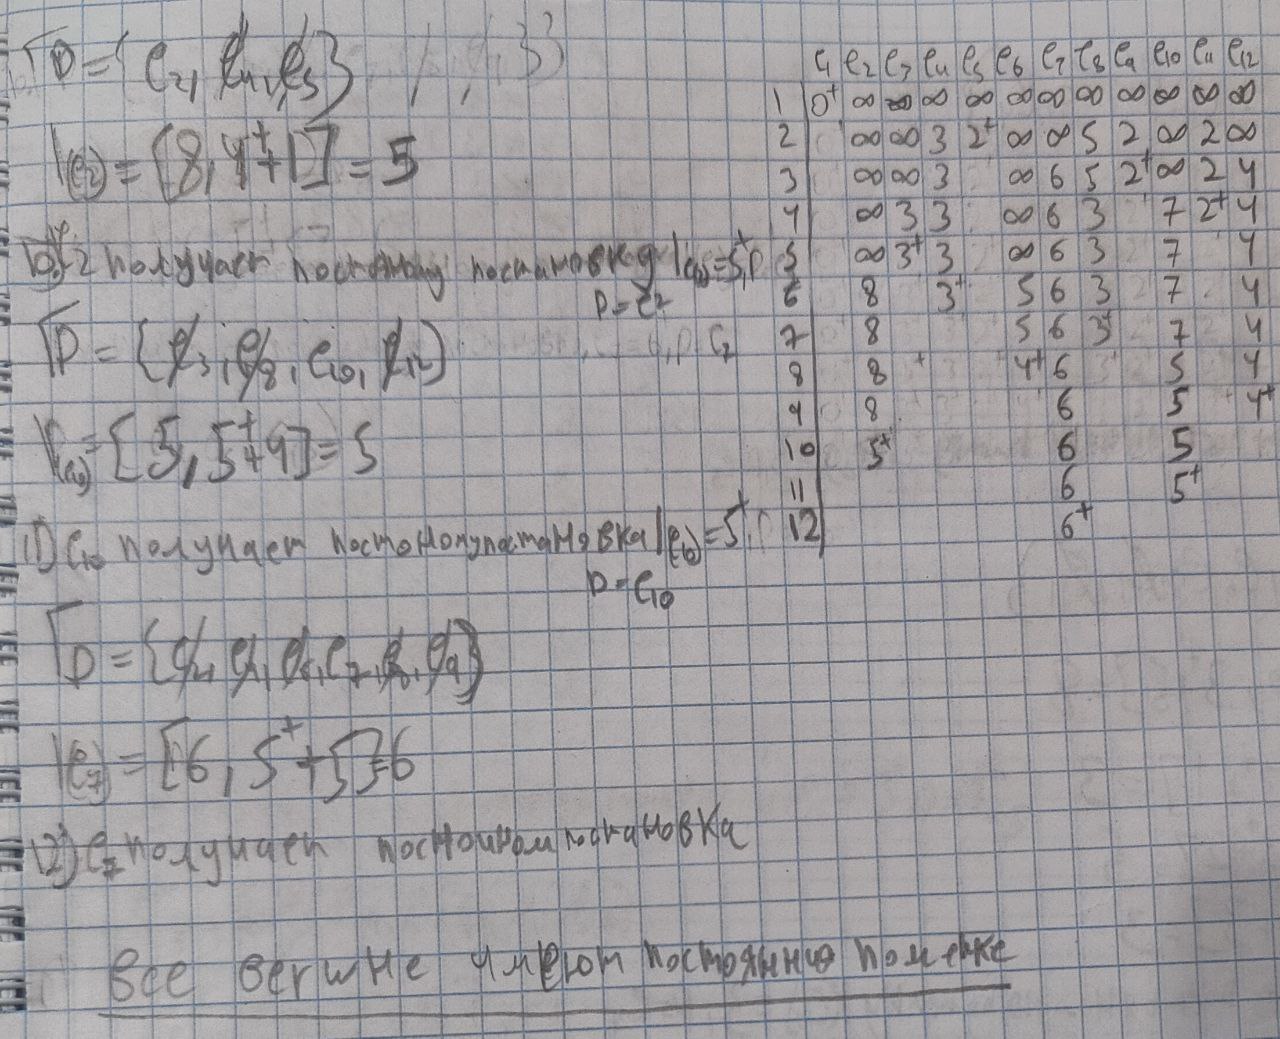 Гp = {e2, e4, e5}
l(e2) = [8, 4⁺+1] = 5
10) e2 получает постоянону постановка l(e2)=5⁺, p
p = e2
Гp = {e3, e8, e10, e12}
l(e10) = [5, 5⁺+4] = 5
11) e10 получает постоянопупостановка l(e10) = 5⁺
p = e10
Гp = {e2, e4, e6, e7, e8, e9}
l(e7) = [6, 5⁺+5] = 6
12) e7 получает постоином постановка
Все вегшне имеют постоянно пометке
e1 e2 e3 e4 e5 e6 e7 e8 e9 e10 e11 e12
1 0⁺ ∞ ∞ ∞ ∞ ∞ ∞ ∞ ∞ ∞ ∞ ∞
2 ∞ ∞ 3 2⁺ ∞ ∞ 5 2 ∞ 2 ∞
3 ∞ ∞ 3 ∞ 6 5 2⁺ ∞ 2 4
4 ∞ 3 3 ∞ 6 3 7 2⁺ 4
5 ∞ 3⁺ 3 ∞ 6 3 7 4
6 8 3⁺ 5 6 3 7 4
7 8 5 6 3⁺ 7 4
8 8 4⁺ 6 5 4
9 8 6 5 4⁺
10 5⁺ 6 5
11 6 5⁺
12 6⁺